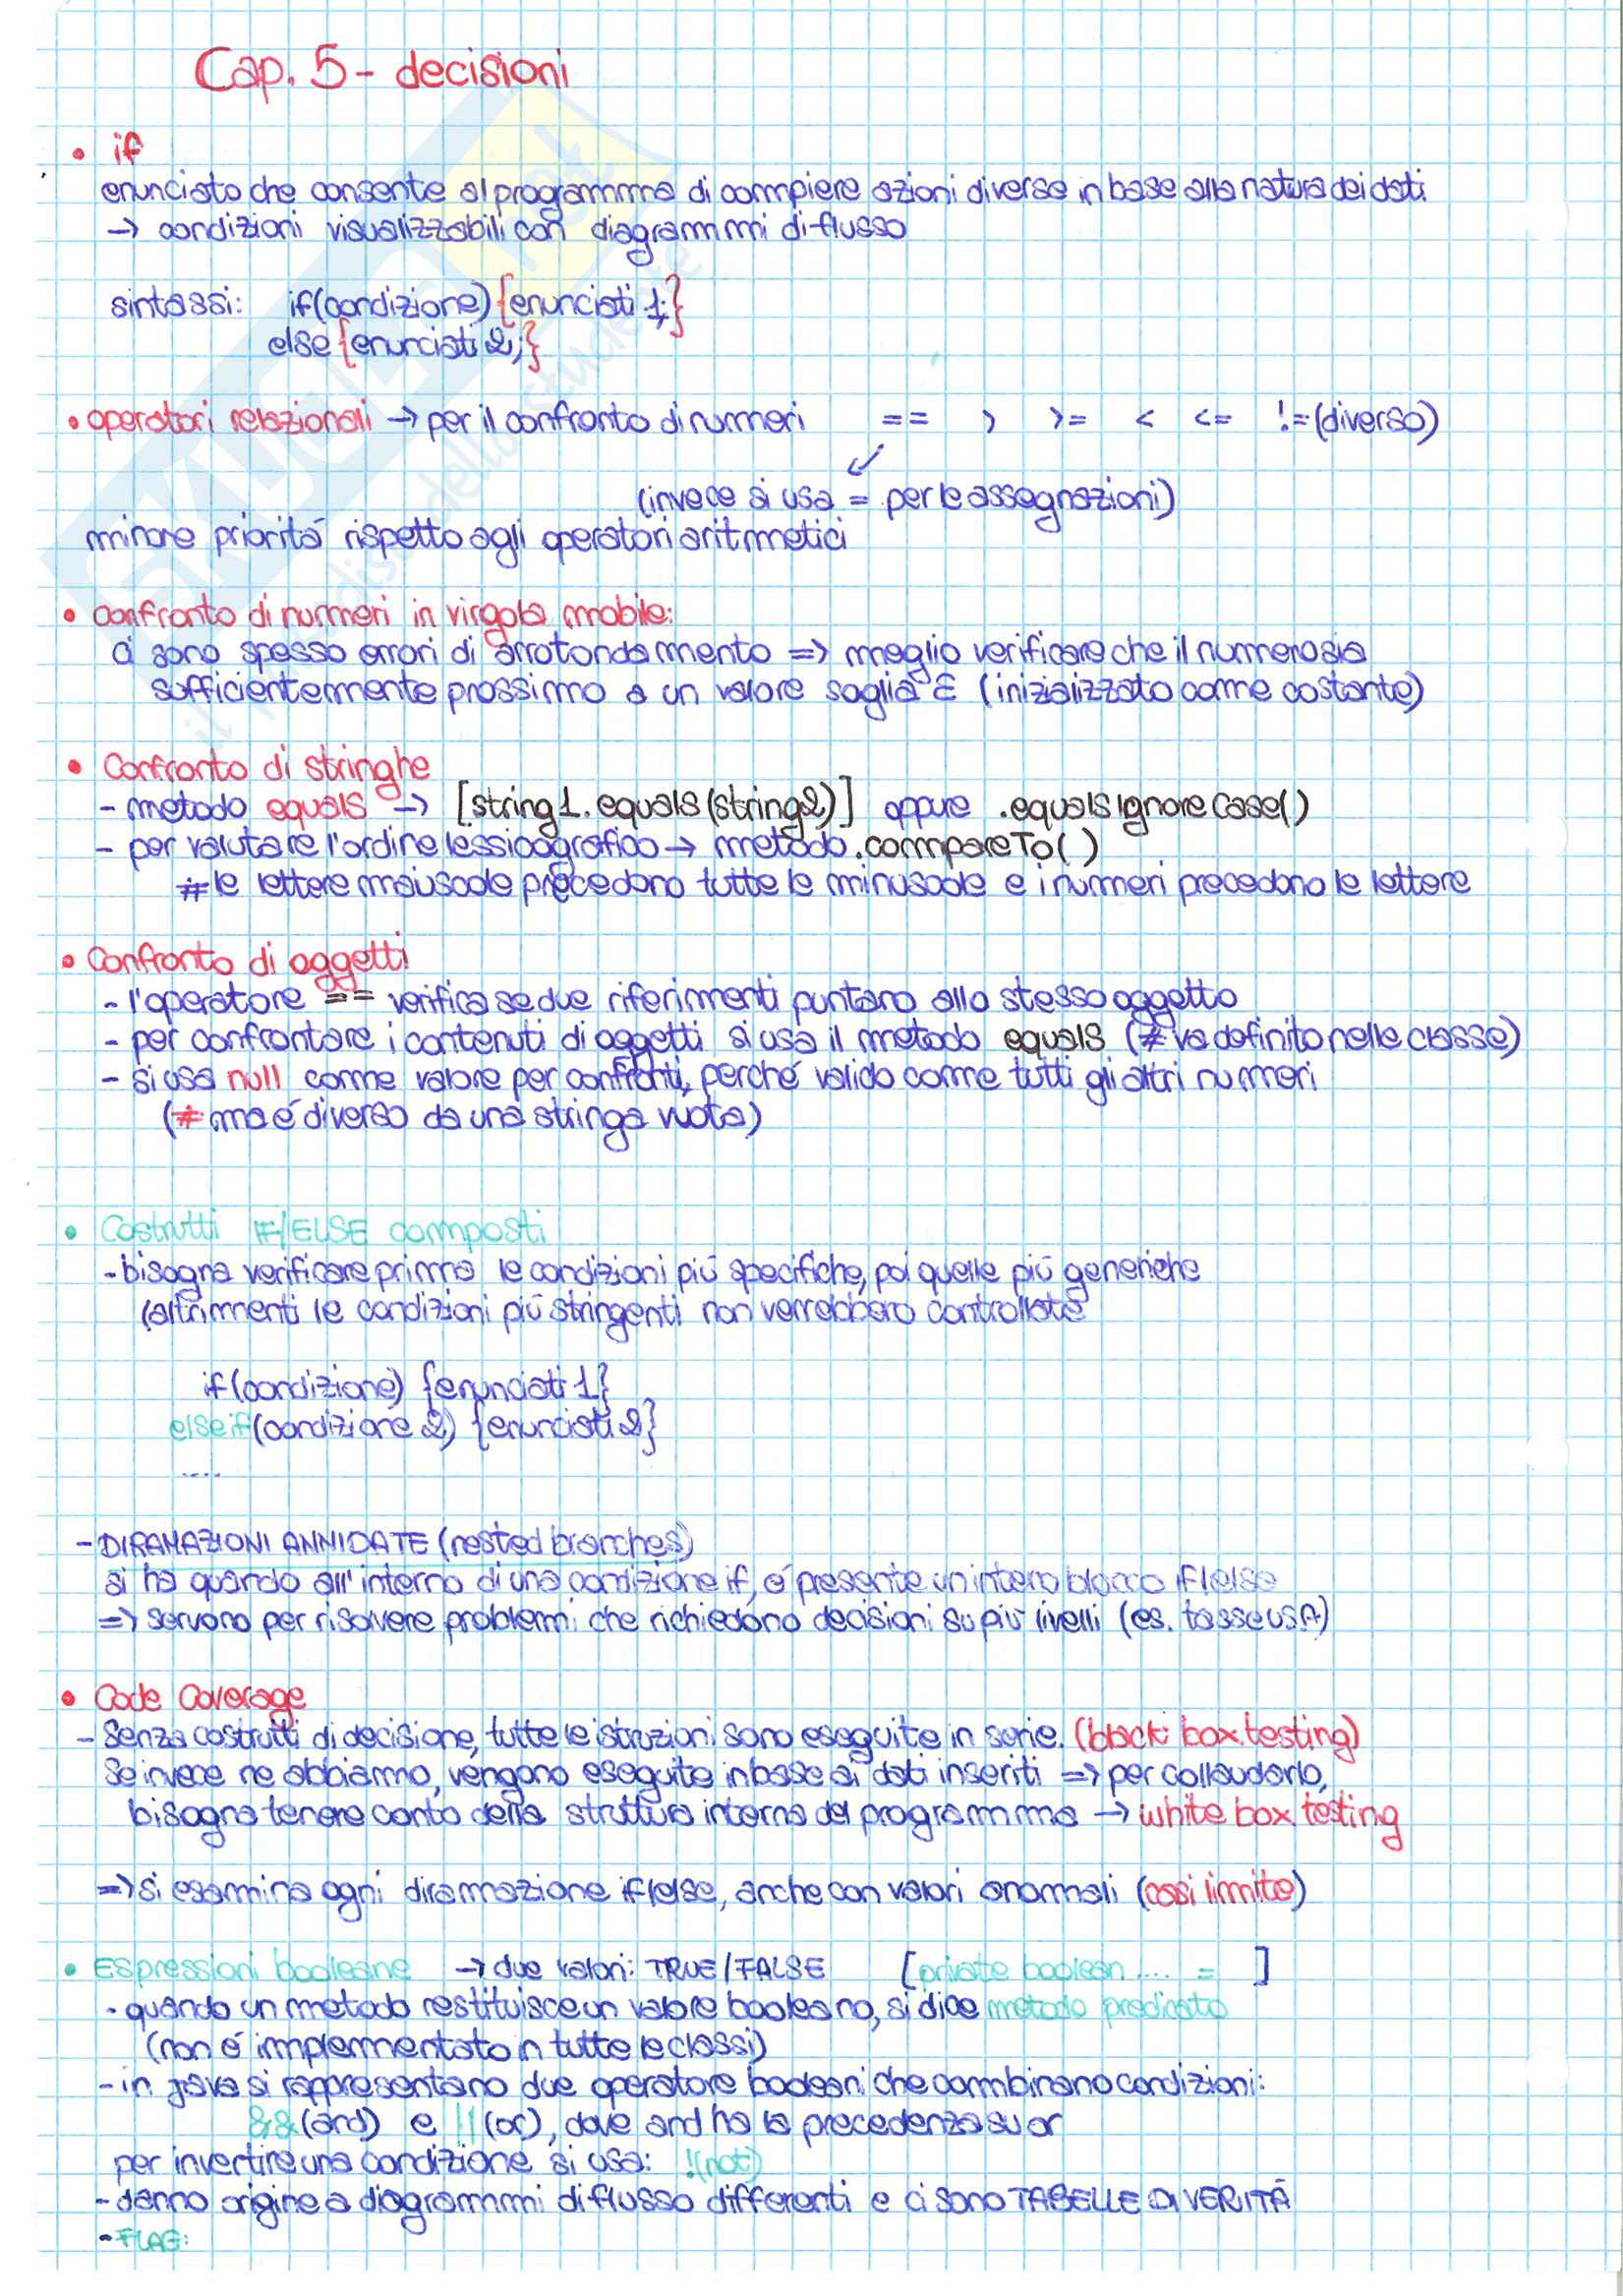 Cap. 5 - decisioni
• if
enunciato che consente al programma di compiere azioni diverse in base alla natura dei dati
→ condizioni visualizzabili con diagrammi di flusso
sintassi: if(condizione) {enunciati 1;}
else {enunciati 2;}
• operatori relazionali → per il confronto di numeri == > >= < <= != (diverso)
(invece si usa = per le assegnazioni)
minore priorità rispetto agli operatori aritmetici
• confronto di numeri in virgola mobile:
ci sono spesso errori di arrotondamento => meglio verificare che il numero sia
sufficientemente prossimo a un valore soglia ε (inizializzato come costante)
• Confronto di stringhe
- metodo equals → [string1.equals(string2)] oppure .equalsIgnoreCase()
- per valutare l'ordine lessicografico → metodo .compareTo( )
# le lettere maiuscole precedono tutte le minuscole e i numeri precedono le lettere
• Confronto di oggetti
- l'operatore == verifica se due riferimenti puntano allo stesso oggetto
- per confrontare i contenuti di oggetti si usa il metodo equals (# va definito nelle classe)
- si usa null come valore per confronti, perché valido come tutti gli altri numeri
(# ma é diverso da una stringa vuota)
• Costrutti IF/ELSE composti
- bisogna verificare prima le condizioni più specifiche, poi quelle più generiche
(altrimenti le condizioni più stringenti non verrebbero controllate
if(condizione) {enunciati 1}
else if(condizione 2) {enunciati 2}
....
- DIRAMAZIONI ANNIDATE (nested branches)
si ha quando all'interno di una condizione if, é presente un intero blocco if/else
=> servono per risolvere problemi che richiedono decisioni su più livelli (es. tasse USA)
• Code Coverage
- Senza costrutti di decisione, tutte le istruzioni sono eseguite in serie. (black box testing)
Se invece ne abbiamo, vengono eseguite in base ai dati inseriti => per collaudarlo,
bisogna tenere conto della struttura interna del programma → white box testing
=> si esamina ogni diramazione if/else, anche con valori anormali (casi limite)
• Espressioni booleane → due valori: TRUE/FALSE [private boolean .... = ]
- quando un metodo restituisce un valore booleano, si dice metodo predicato
(non é implementato in tutte le classi)
- in java si rappresentano due operatore booleani che combinano condizioni:
&& (and) e || (or), dove and ha la precedenza su or
per invertire una condizione si usa: !(not)
- danno origine a diagrammi di flusso differenti e ci sono TABELLE DI VERITÀ
- FLAG: